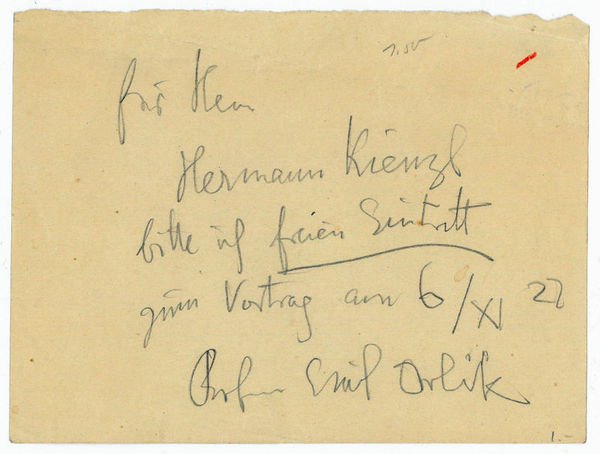 1.50
für Herrn
Hermann Kienzl
bitte ich freien Eintritt
zum Vortrag am 6/XI 22
Professor Emil Orlik
1.-